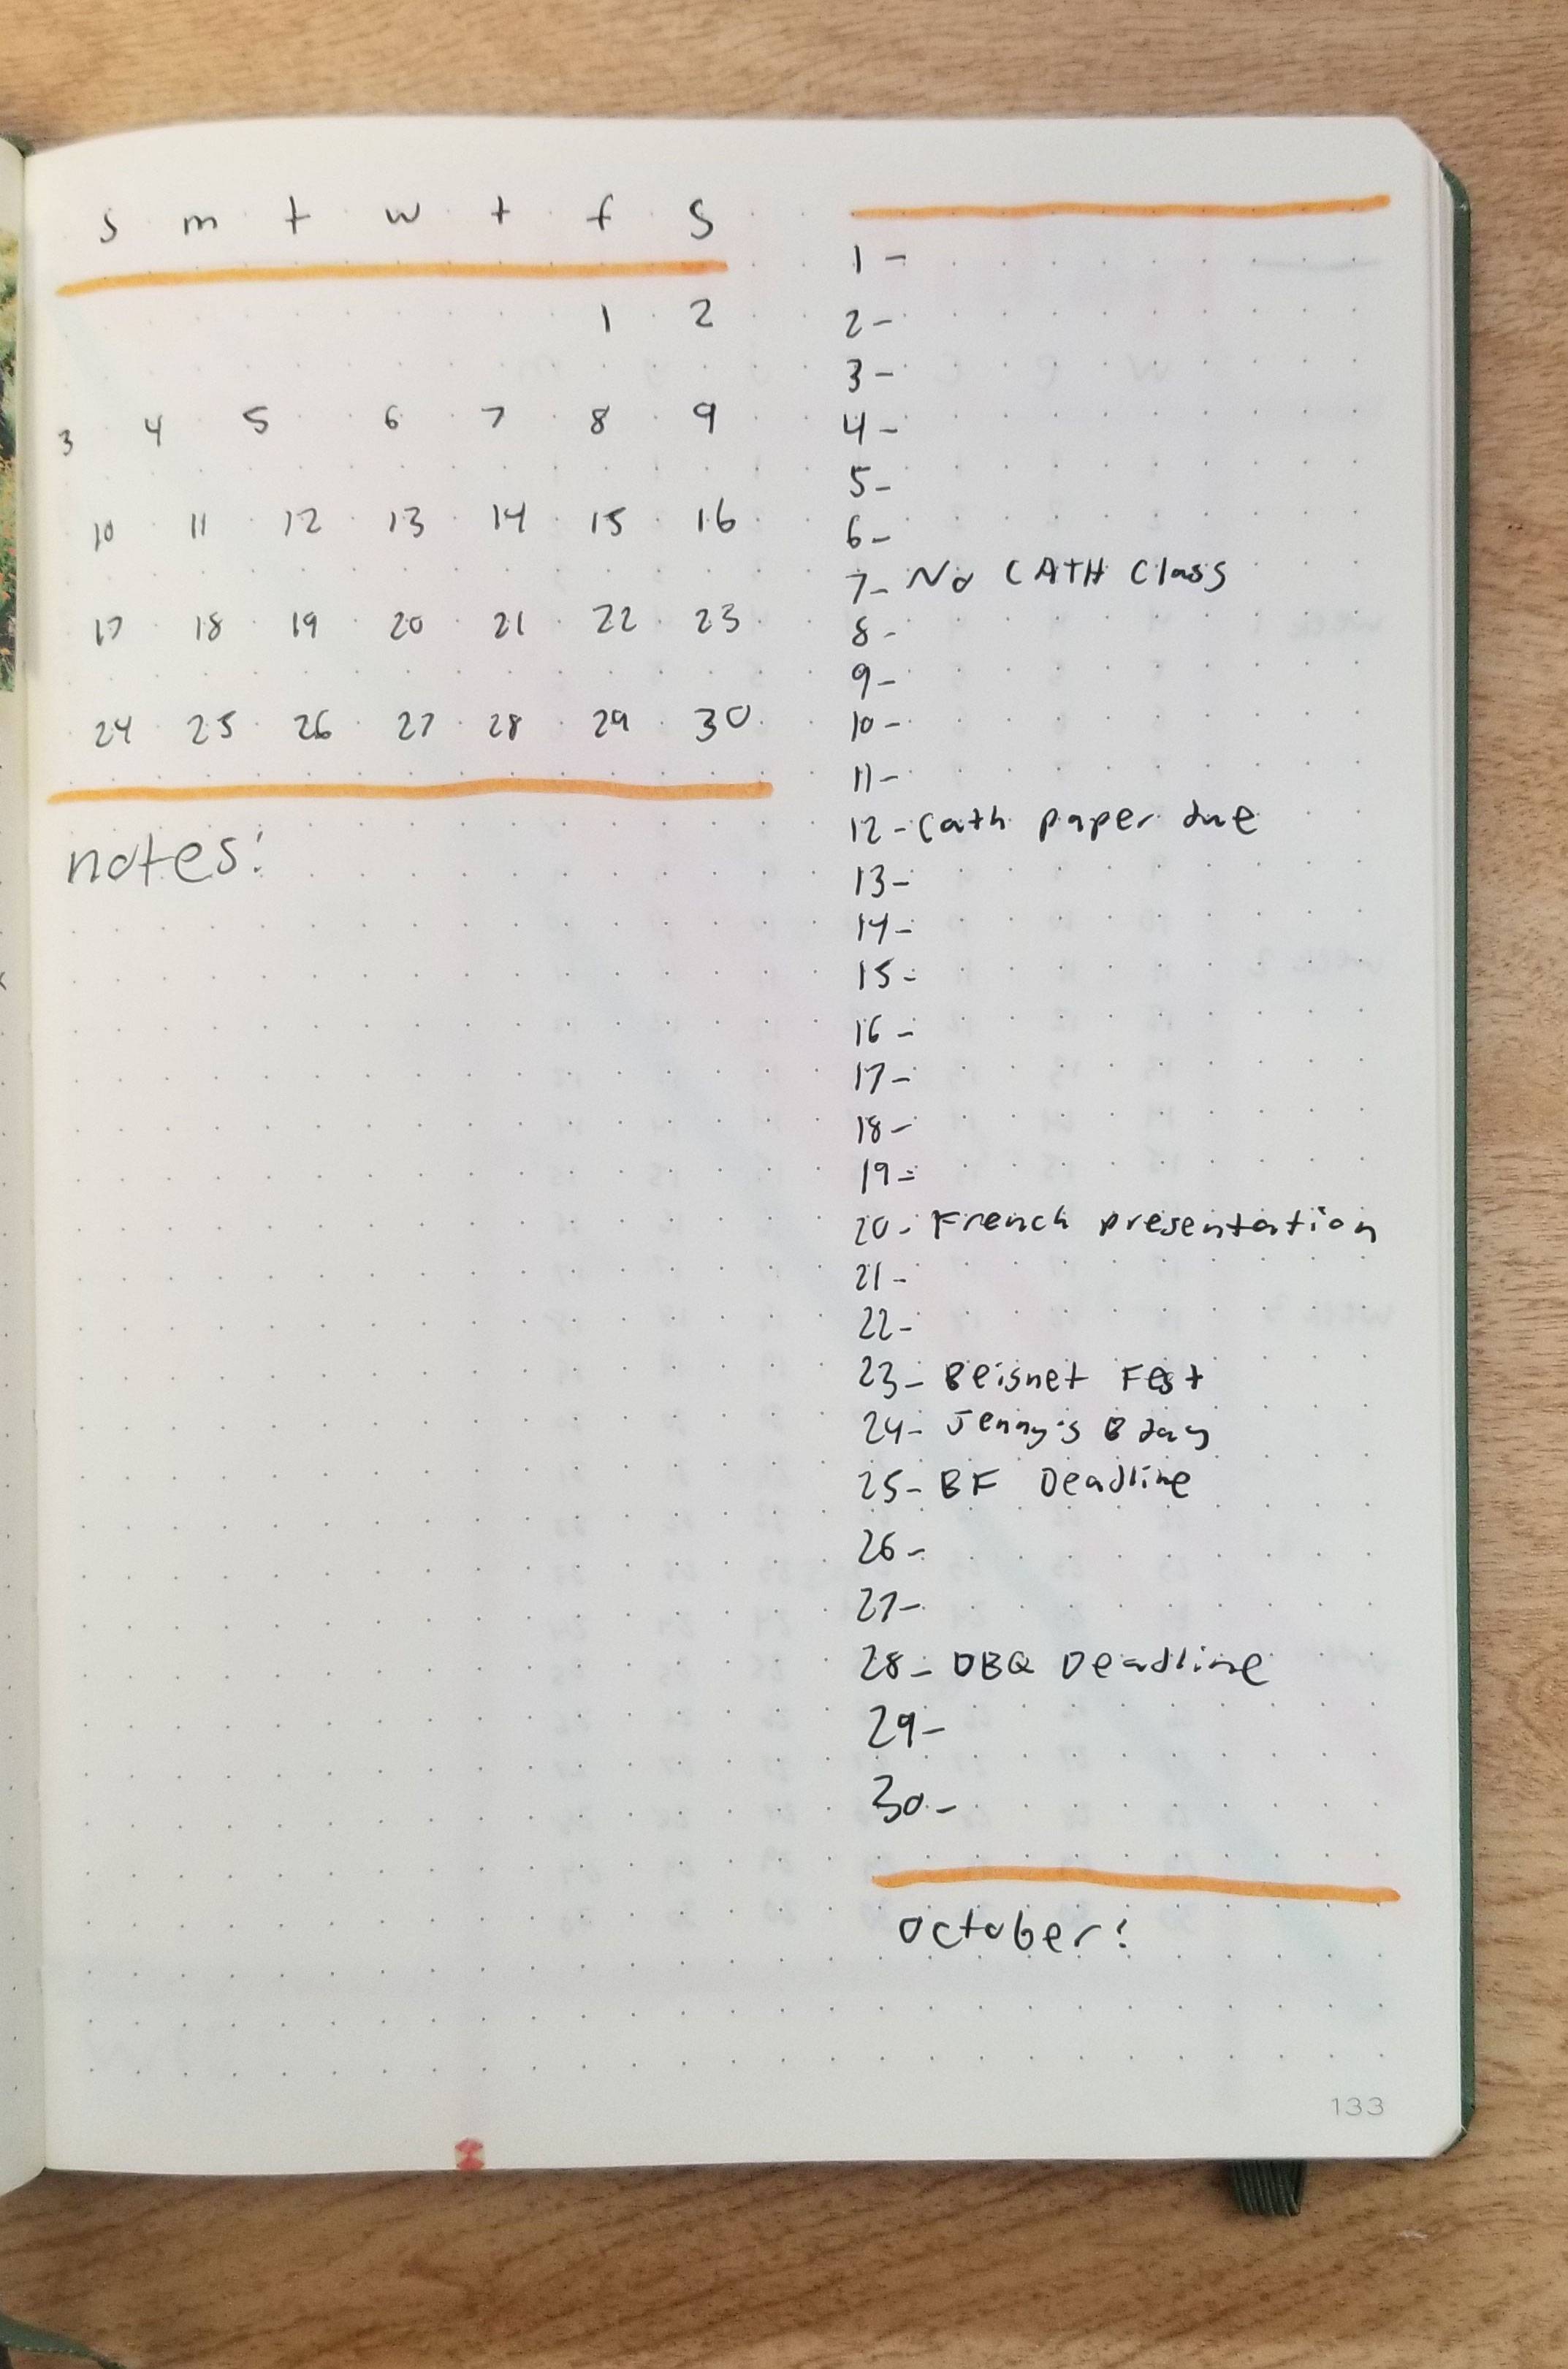 s m t w t f S
1 2
3 4 5 6 7 8 9
10 11 12 13 14 15 16
17 18 19 20 21 22 23
24 25 26 27 28 29 30
notes:
1-
2-
3-
4-
5-
6-
7- No CATH Class
8-
9-
10-
11-
12- Cath paper due
13-
14-
15-
16-
17-
18-
19-
20- French presentation
21-
22-
23- Beisnet Fest
24- Jenny's Bday
25- BF Deadline
26-
27-
28- DBQ Deadline
29-
30-
october:
133